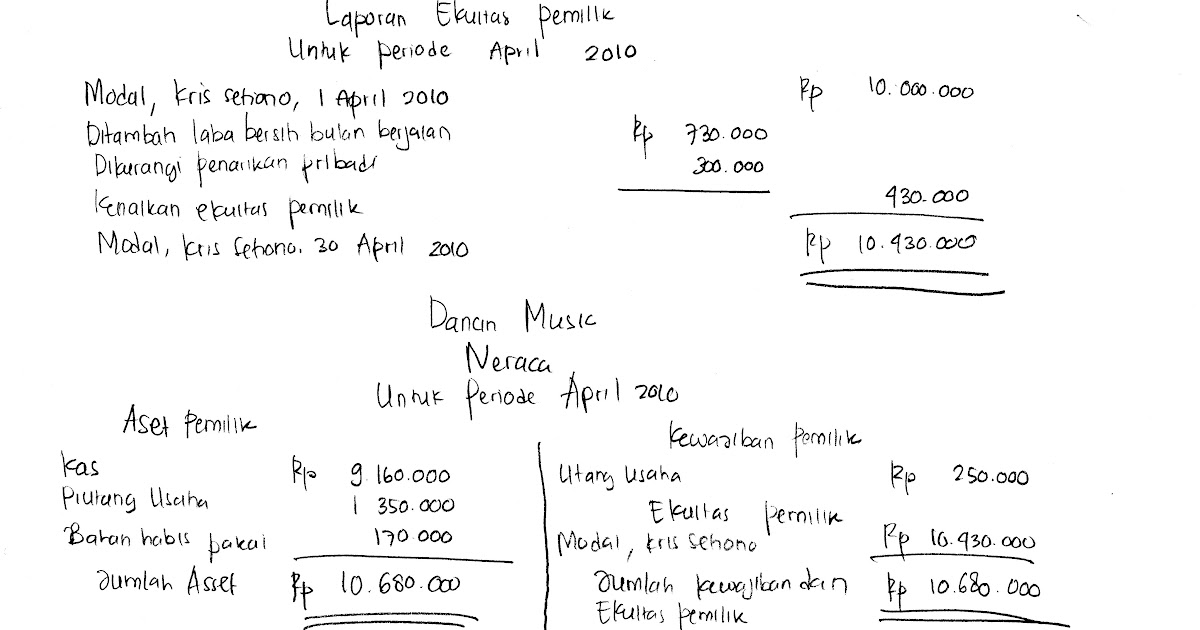 Laporan Ekuitas Pemilik
Untuk periode April 2010
Modal, Kris Setiono, 1 April 2010 Rp 10.000.000
Ditambah laba bersih bulan berjalan Rp 730.000
Dikurangi penarikan pribadi 300.000
Kenaikan ekuitas pemilik 430.000
Modal, Kris Setiono. 30 April 2010 Rp 10.430.000
Danan Music
Neraca
Untuk Periode April 2010
Aset Pemilik
Kas Rp 9.160.000
Piutang Usaha 1 350.000
Bahan habis pakai 170.000
Jumlah Asset Rp 10.680.000
Kewajiban Pemilik
Utang Usaha Rp 250.000
Ekuitas pemilik
Modal, Kris Setiono Rp 10.430.000
Jumlah kewajiban dan Rp 10.680.000
Ekuitas pemilik